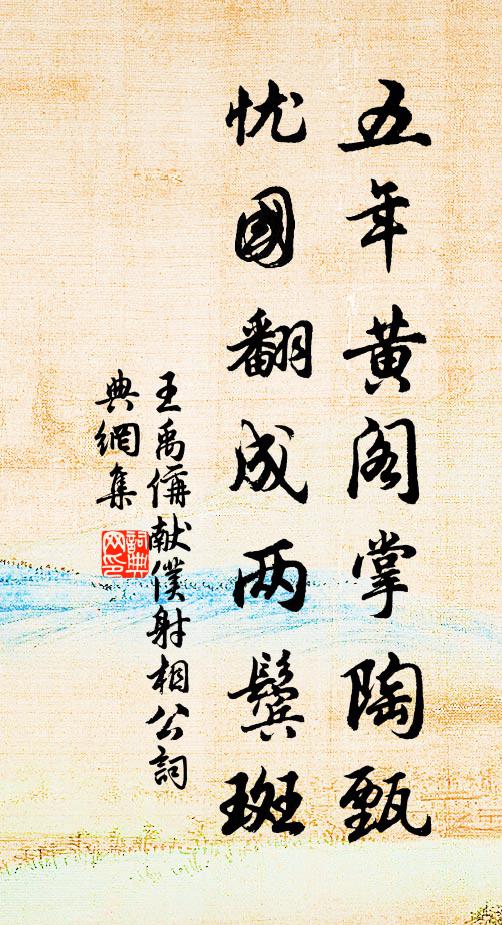 五年黄阁掌陶甄
忧國翻成两鬓斑
王禹偁献僕射相公詞
典網集
詞典网印